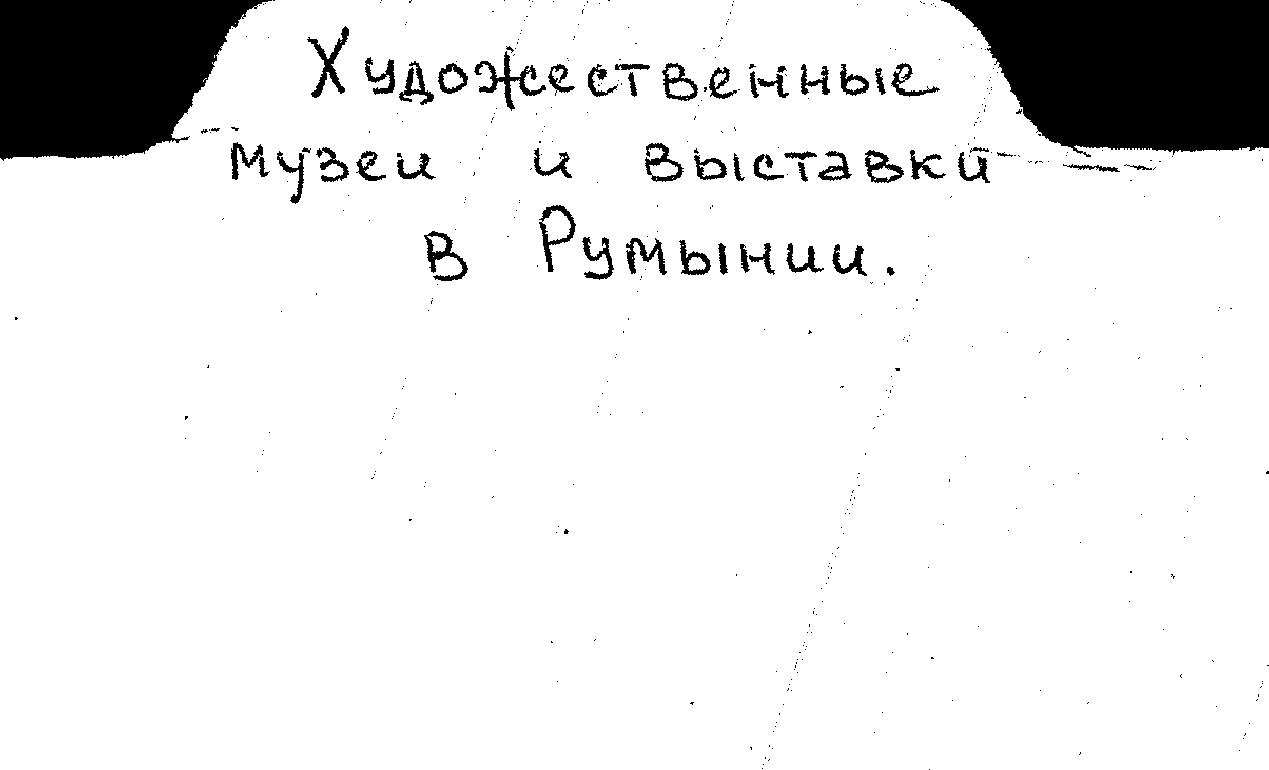 Художественные
музеи и выставки
в Румынии.